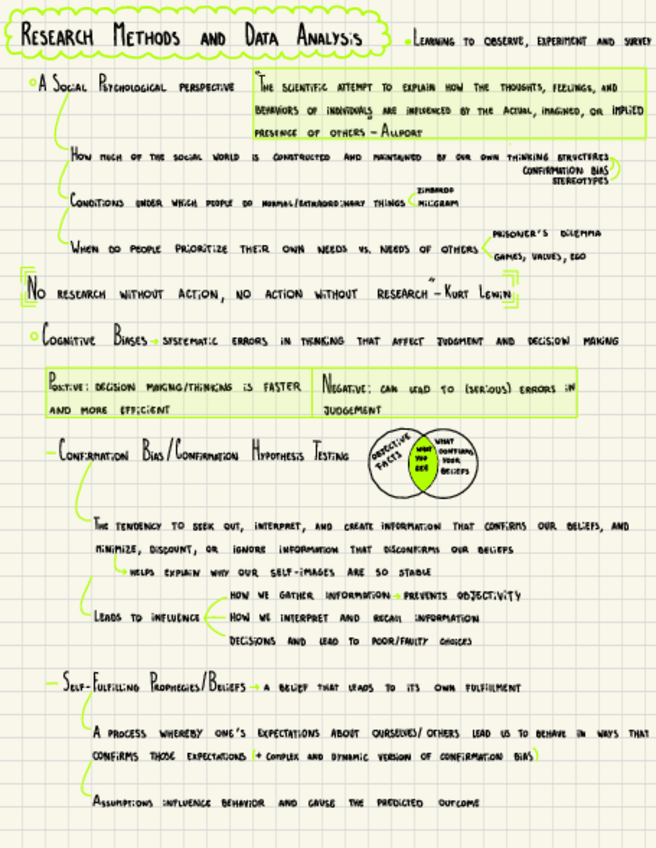 RESEARCH METHODS AND DATA ANALYSIS
• LEARNING TO OBSERVE, EXPERIMENT AND SURVEY
A SOCIAL PSYCHOLOGICAL PERSPECTIVE
"THE SCIENTIFIC ATTEMPT TO EXPLAIN HOW THE THOUGHTS, FEELINGS, AND
BEHAVIORS OF INDIVIDUALS ARE INFLUENCED BY THE ACTUAL, IMAGINED, OR IMPLIED
PRESENCE OF OTHERS" - ALLPORT
HOW MUCH OF THE SOCIAL WORLD IS CONSTRUCTED AND MAINTAINED BY OUR OWN THINKING STRUCTURES
CONFIRMATION BIAS
STEREOTYPES
CONDITIONS UNDER WHICH PEOPLE DO NORMAL/EXTRAORDINARY THINGS
ZIMBARDO
MILGRAM
WHEN DO PEOPLE PRIORITIZE THEIR OWN NEEDS VS. NEEDS OF OTHERS
PRISONER'S DILEMMA
GAMES, VALUES, EGO
NO RESEARCH WITHOUT ACTION, NO ACTION WITHOUT RESEARCH" - KURT LEWIN
COGNITIVE BIASES → SYSTEMATIC ERRORS IN THINKING THAT AFFECT JUDGMENT AND DECISION MAKING
POSITIVE: DECISION MAKING/THINKING IS FASTER
AND MORE EFFICIENT
NEGATIVE: CAN LEAD TO (SERIOUS) ERRORS IN
JUDGEMENT
- CONFIRMATION BIAS/CONFIRMATION HYPOTHESIS TESTING
OBJECTIVE
FACTS
WHAT
YOU
SEE
WHAT
CONFIRMS
YOUR
BELIEFS
THE TENDENCY TO SEEK OUT, INTERPRET, AND CREATE INFORMATION THAT CONFIRMS OUR BELIEFS, AND
MINIMIZE, DISCOUNT, OR IGNORE INFORMATION THAT DISCONFIRMS OUR BELIEFS
HELPS EXPLAIN WHY OUR SELF-IMAGES ARE SO STABLE
LEADS TO INFLUENCE
HOW WE GATHER INFORMATION → PREVENTS OBJECTIVITY
HOW WE INTERPRET AND RECALL INFORMATION
DECISIONS AND LEAD TO POOR/FAULTY CHOICES
- SELF-FULFILLING PROPHECIES/BELIEFS → A BELIEF THAT LEADS TO ITS OWN FULFILLMENT
A PROCESS WHEREBY ONE'S EXPECTATIONS ABOUT OURSELVES/OTHERS LEAD US TO BEHAVE IN WAYS THAT
CONFIRMS THOSE EXPECTATIONS (+ COMPLEX AND DYNAMIC VERSION OF CONFIRMATION BIAS)
ASSUMPTIONS INFLUENCE BEHAVIOR AND CAUSE THE PREDICTED OUTCOME